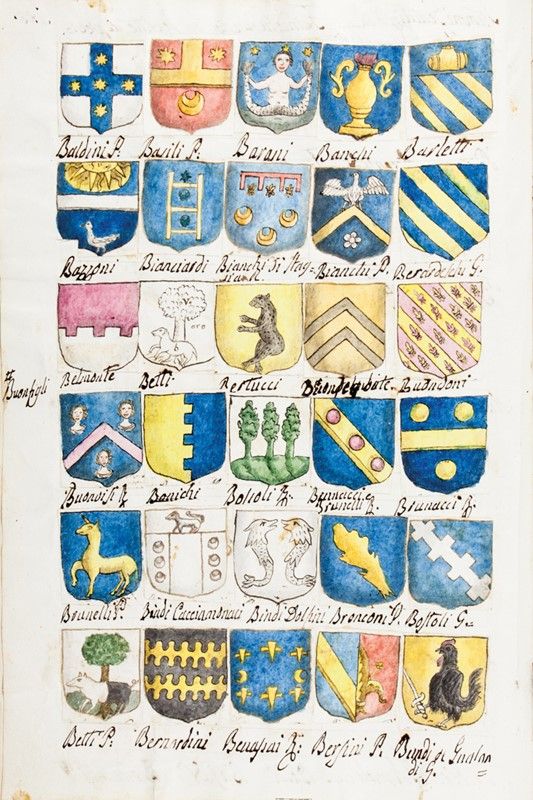 Baldini P. Basili P. Barani Banchi Barletti
Bazzoni Bianciardi Bianchi di Stag= Bianchi P. Berardeschi G.
Buonfigli Belmonte Betti Bertucci Buondelmonte Buondoni
Buonvisi Banichi Bossoli Bennucci e
Brunelli Brunacci
Brunelli P. Bindi Cacciamonaci Bindi Dolfini Bronconi P. Bostoli G.=
Betti P. Bernardini Benassai Bersini P. Bundi
di G. =